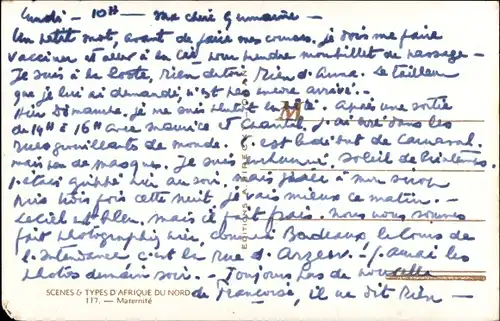 Lundi - 10H - Ma chère Germaine -
Un petit mot, avant de faire mes courses. Je dois me faire
vacciner et aller à la Cie pour prendre mon billet de passage -
Je suis à la Poste, rien de toi. Rien d'Anna. Le tailleur
que je lui ai demandé, n'est pas encore arrivé. -
Hier Dimanche, je me suis Après une sortie
de 14H à 16H avec Maurice et Chantal, j'ai erré dans les
rues grouillantes de monde. C'est de Carnaval
mais pas de masques. Je suis enrhumé, soleil de printemps
J'étais grippé hier au soir, mais grâce à mon sirop
pris trois fois cette nuit, je vais mieux ce matin. -
Le ciel est bleu, mais il fait frais. Nous nous sommes
fait photographier hier, comme à Bordeaux le Cours de
l'Intendance c'est la Rue d'Arzew. J'aurai les
photos demain soir. - Toujours pas de nouvelle
de Françoise, il ne dit rien -
EDITIONS A. SIRECKY - ORAN
SCENES & TYPES D'AFRIQUE DU NORD
117. — Maternité